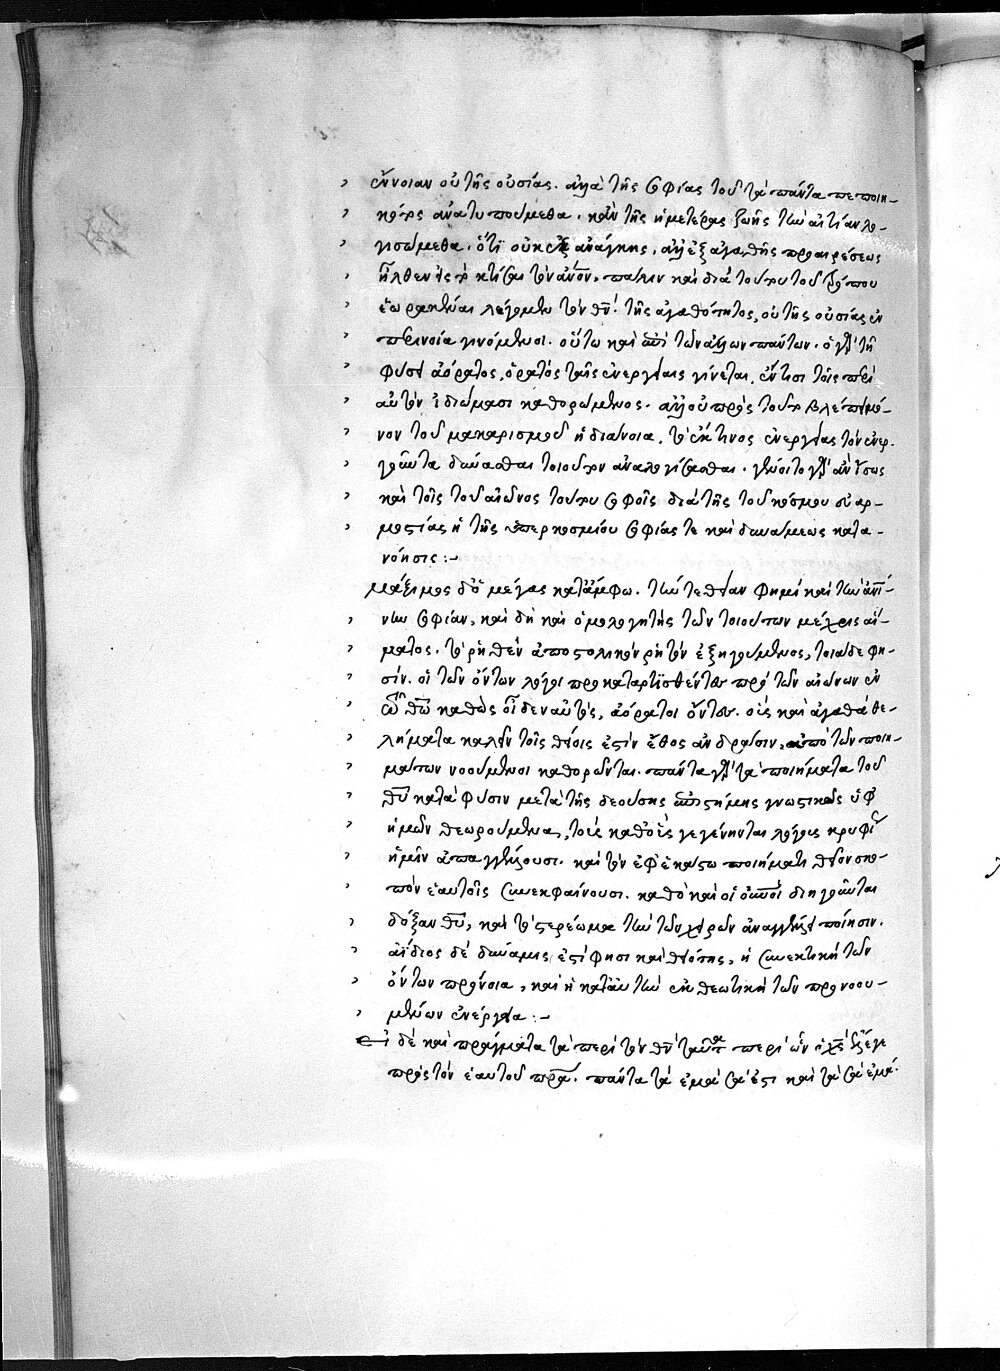 ἔννοιαν οὐ τῆς οὐσίας. ἀλλὰ τῆς σοφίας τοῦ τὰ πάντα πεποιη-
κότος ἀνατυπούμεθα. κἂν τῆς ἡμετέρας ζωῆς τὴν αἰτίαν λο-
γισώμεθα. ὅτι οὐκ ἐξ ἀνάγκης, ἀλλ' ἐξ ἀγαθῆς προαιρέσεως
ἦλθεν εἰς τὸ κτίσαι τὸν ἄνον, πάλιν καὶ διὰ τούτου τοῦ τρόπου
ἑωρακέναι λέγομεν τὸν θν. τῆς ἀγαθότητος, οὐ τῆς οὐσίας ἐν
περινοία γινόμενοι. οὕτω καὶ ἐπὶ τῶν ἄλλων πάντων. ὁ γὰρ τῇ
φύσει ἀόρατος, ὁρατὸς ταῖς ἐνεργείαις γίνεται, ἔν τισι τοῖς περὶ
αὐτὸν ἰδιώμασι καθορώμενος. ἀλλ' οὐ πρὸς τοῦτο βλέπει μό-
νον τοῦ μακαρισμοῦ ἡ διάνοια, τὸ ἔκ τινος ἐνεργείας τὸν ἐνερ-
γοῦντα δύνασθαι τοιοῦτον ἀναλογίσασθαι. γένοιτο γὰρ ἂν ἴσως
καὶ τοῖς τοῦ αἰῶνος τούτου σοφοῖς διὰ τῆς τοῦ κόσμου εὐαρ-
μοστίας ἡ τῆς ὑπερκοσμίου σοφίας τε καὶ δυνάμεως κατα-
νόησις :-
μάξιμος δὲ ὁ μέγας κατάμφω. τήν τε θείαν φημὶ καὶ τὴν ἀνθρωπί-
νην σοφίαν, καὶ δὴ καὶ ὁμολογητὴς τῶν τοιούτων μέχρις αἵ-
ματος. τὸ ῥηθὲν ἀποστολικὸν ῥητὸν ἐξηγούμενος, τοιάδε φη-
σίν. οἱ τῶν ὄντων λόγοι προκαταρτισθέντες πρὸ τῶν αἰώνων ἐν
τῷ θῶ καθὼς οἶδεν αὐτὸς, ἀόρατοι ὄντες. οὓς καὶ ἀγαθὰ θε-
λήματα καλεῖν τοῖς θείοις ἐστὶν ἔθος ἀνδράσιν, ἀπὸ τῶν ποιη-
μάτων νοούμενοι καθορῶνται. πάντα γὰρ τὰ ποιήματα τοῦ
θῦ κατὰ φύσιν μετὰ τῆς δεούσης ἐπιστήμης γνωστικῶς ὑφ'
ἡμῶν θεωρούμενα, τοὺς καθ' οὓς γεγένηνται λόγους κρυφίως
ἡμῖν ἀπαγγέλλουσι. καὶ τὸν ἐφ' ἑκάστω ποιήματι θεῖον σκο-
πὸν ἑαυτοῖς συνεκφαίνουσι. καθὸ καὶ οἱ οὐνοὶ διηγοῦνται
δόξαν θῦ, καὶ τὸ στερέωμα τὴν τῶν χειρῶν ἀναγγέλλει ποίησιν.
ἀΐδιος δὲ δύναμις ἐστί φησι καὶ θειότης, ἡ συνεκτικὴ τῶν
ὄντων πρόνοια, καὶ ἡ κατ' αὐτὴν ἐκθεωτικὴ τῶν προνοου-
μένων ἐνέργεια :-
εἰ δὲ καὶ πράγματα τὰ περὶ τὸν θν ταῦτα περὶ ὧν ὁ χς ἔλεγε
πρὸς τὸν ἑαυτοῦ πρα. πάντα τὰ ἐμὰ σά ἐστι καὶ τὰ σὰ ἐμά.